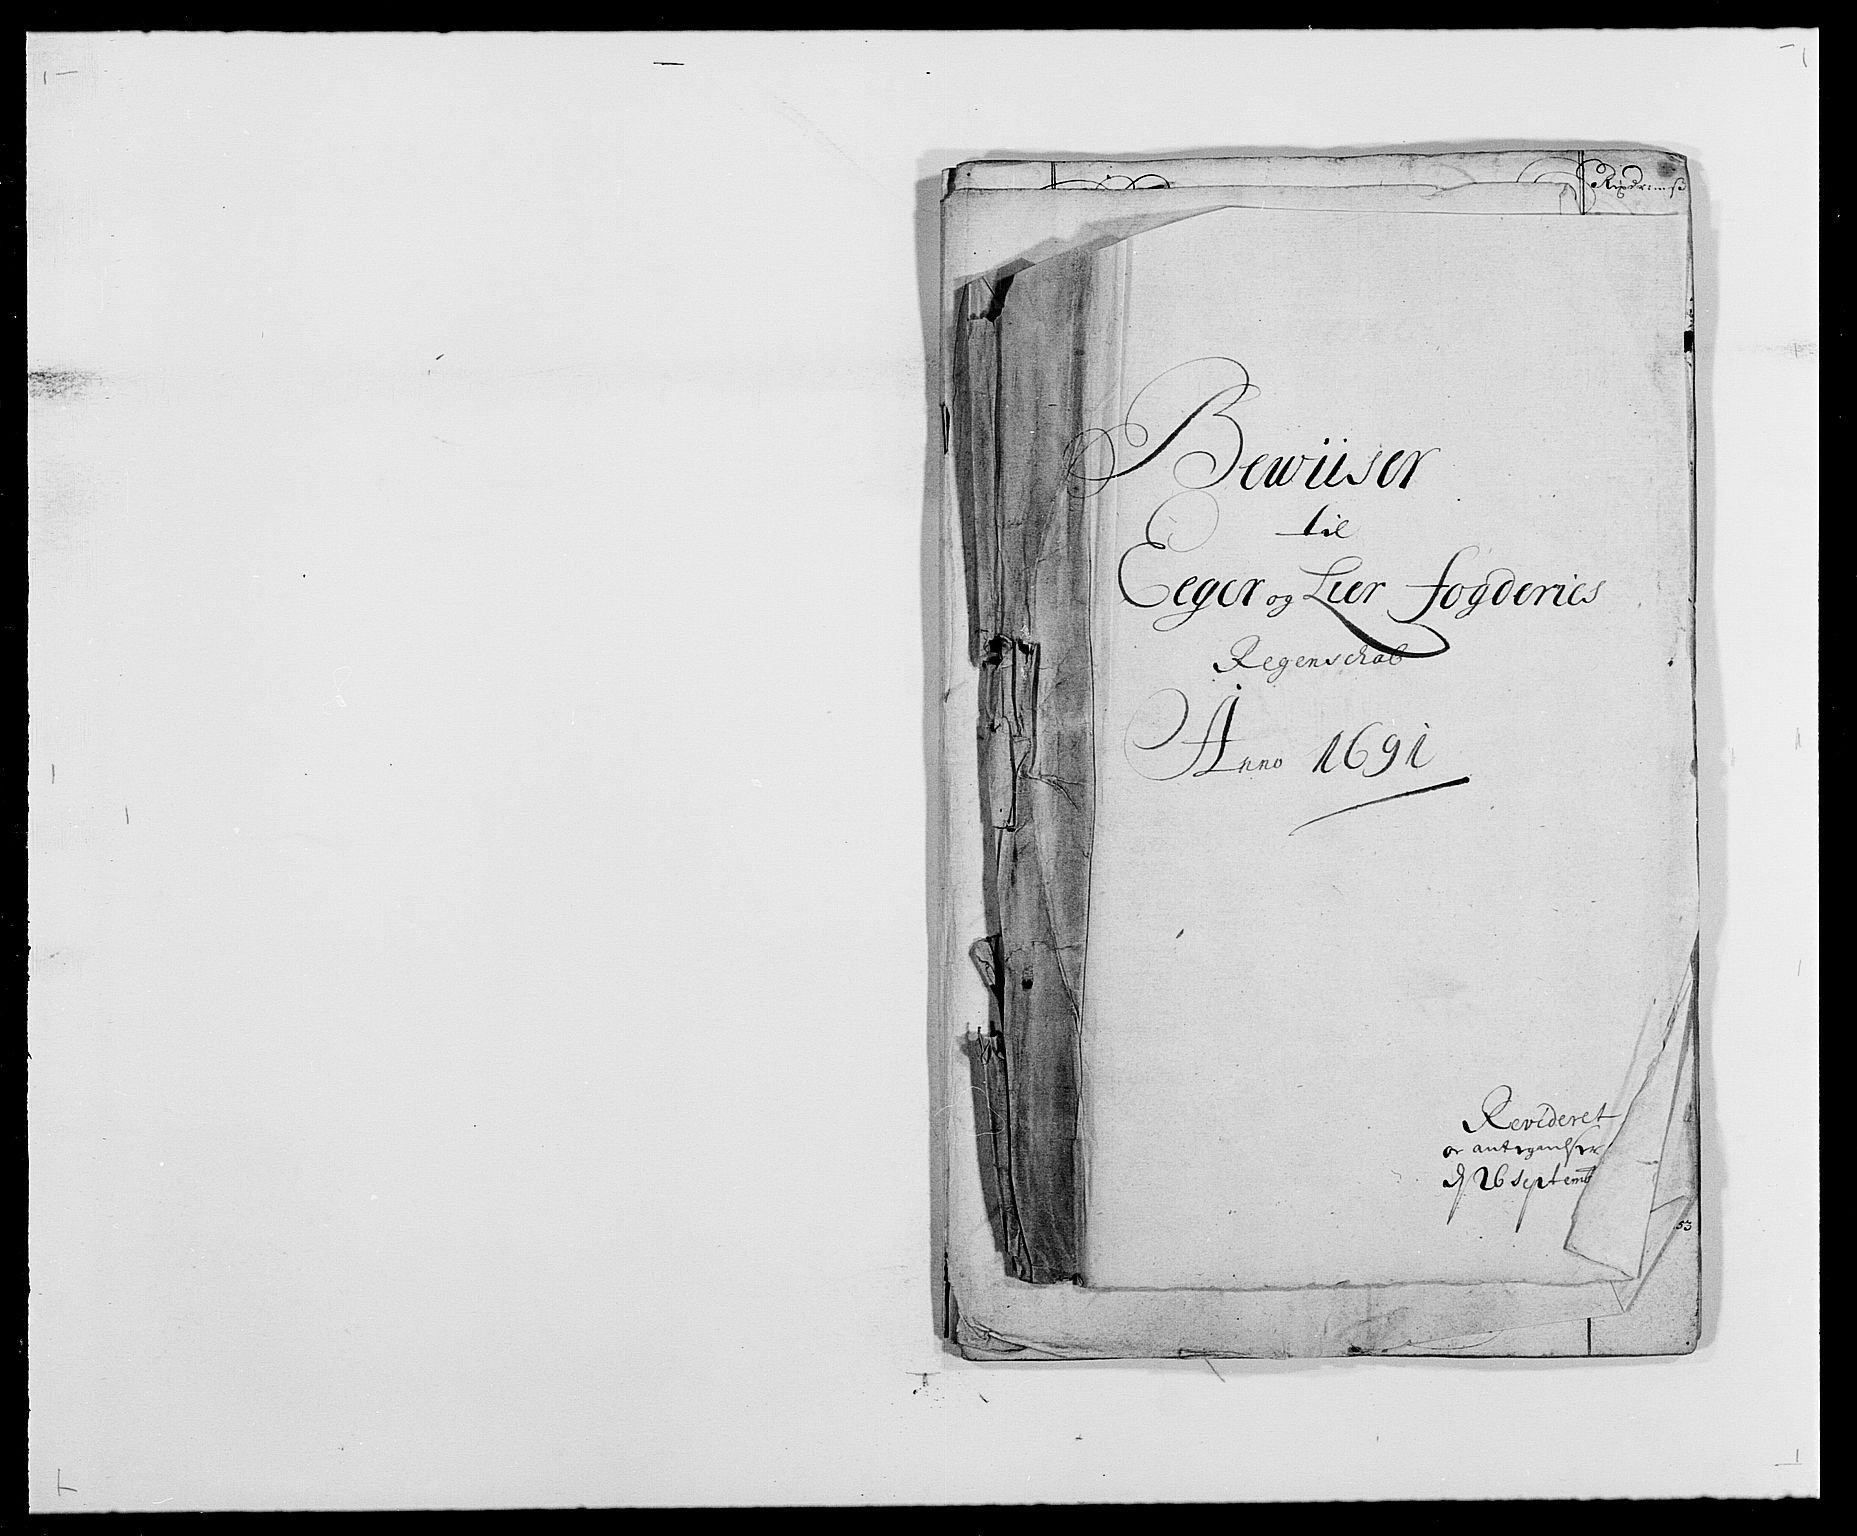 Bewiiser
til
Eeger og Lier fogderies
Regenschab
Anno 1691
Revideret
oc antegnelser
d 26 septemb
53